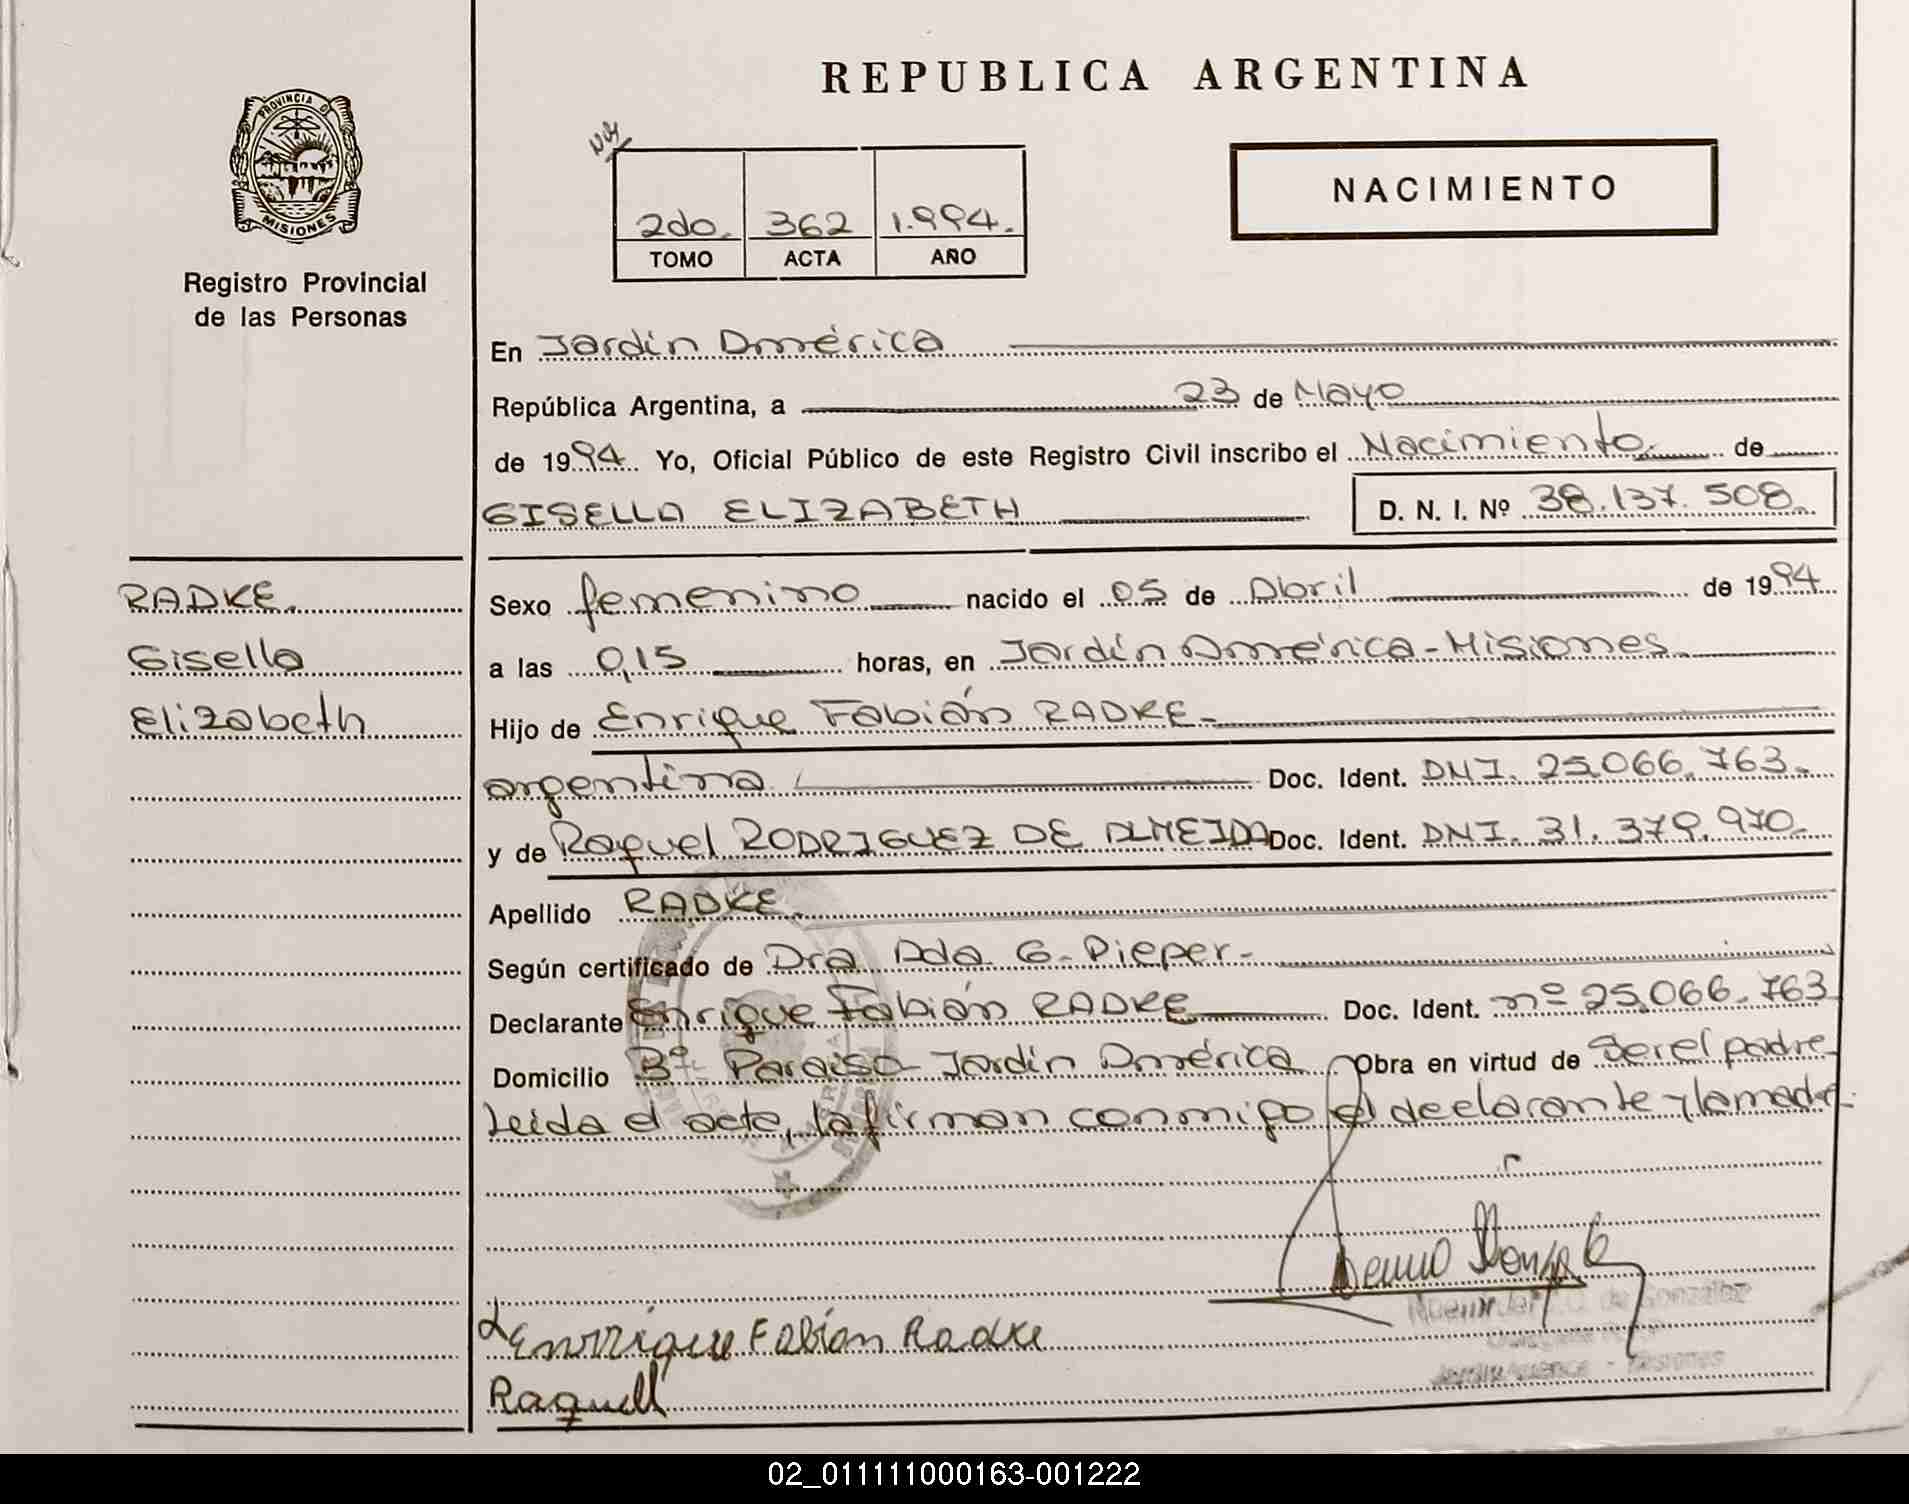 REPUBLICA ARGENTINA
PROVINCIA D
MISIONES
Registro Provincial
de las Personas
2do. 362 1.994.
TOMO ACTA AÑO
NACIMIENTO
En Jardín América
República Argentina, a 23 de Mayo
de 1994. Yo, Oficial Público de este Registro Civil inscribo el Nacimiento. de
GISELLA ELIZABETH D. N. I. Nº 38.137.508.
RADKE.
Gisella
Elizabeth
Sexo femenino nacido el 05 de Abril de 1994
a las 0,15 horas, en Jardín América-Misiones.
Hijo de Enrique Fabián RADKE-
argentina Doc. Ident. DNI. 25.066.763.
y de Raquel RODRIGUEZ DE ALMEIDA Doc. Ident. DNI. 31.379.970.
Apellido RADKE.
Según certificado de Dra Ada G. Pieper-
Declarante Enrique Fabián RADKE Doc. Ident. nº 25.066.763
Domicilio Bº Paraiso-Jardín América Obra en virtud de Ser el padre
Leida el acta, la firman conmigo el declarante y la madre.
Enrrique Fabian Radke
Raquel
de González
02_011111000163-001222